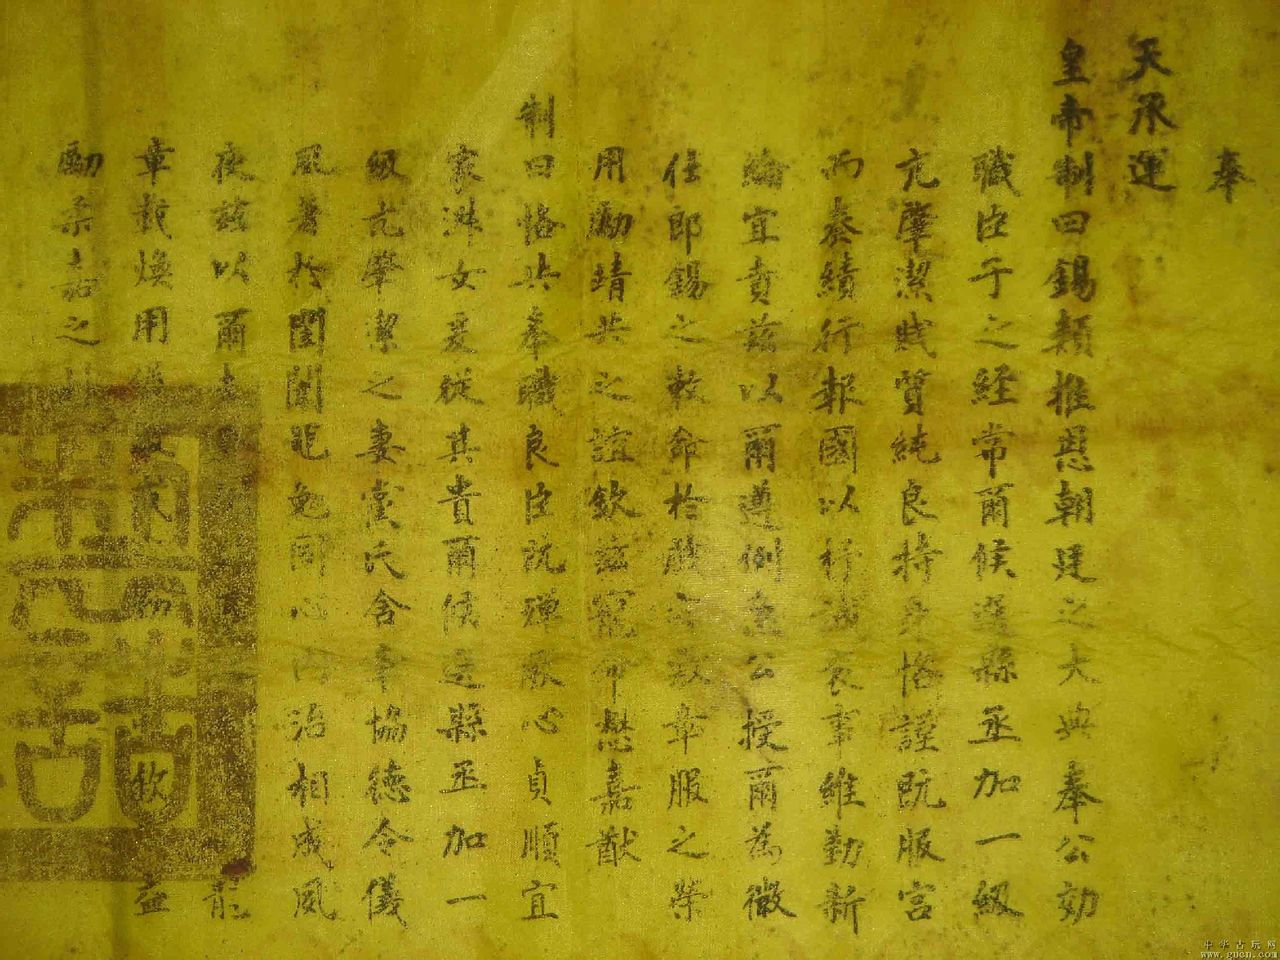 奉
天承運
皇帝制曰錫類推恩朝廷之大典奉公効
職臣子之經常爾候選縣丞加一級
亢肇潔賎質純良持身恪謹既服官
而奏績行報國以抒誠衷事維勤新
綸宜賁茲以爾遵例急公授爾為徵
仕郎錫之敕命於戲章服之榮
用勵靖共之誼欽茲寵命懋嘉猷
制曰恪共奉職良臣既殫厥心貞順宜
家淑女爰從其貴爾候選縣丞加一
級亢肇潔之妻党氏含章協德令儀
風著於閨闈黽勉同心內治相成夙
夜茲以爾
章載煥用
勵柔嘉之
欽
中华古玩网
www.gucn.com